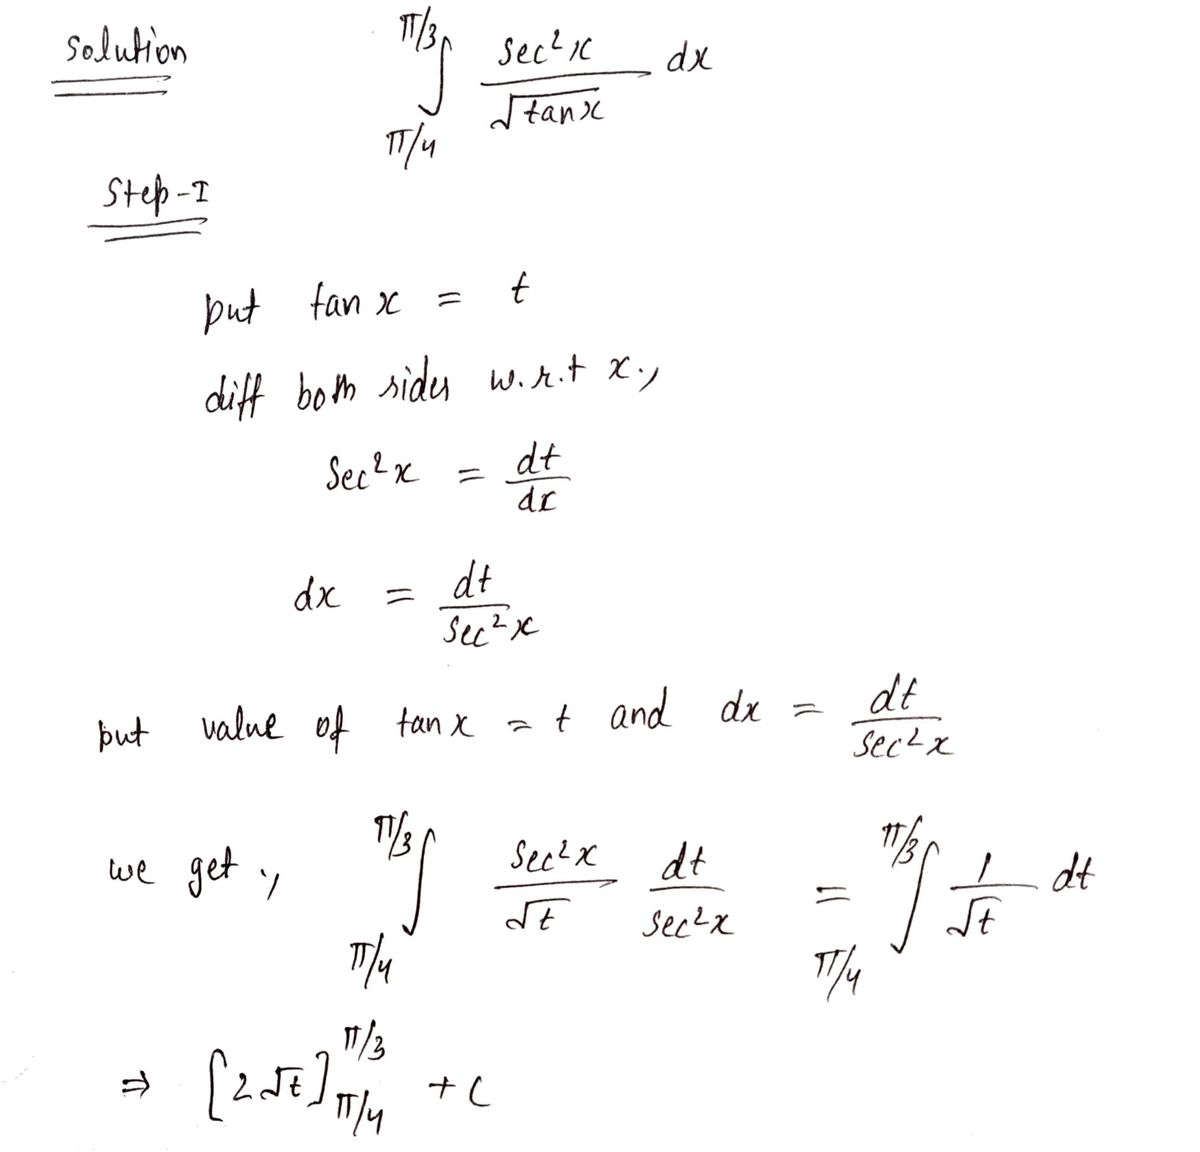 Solution ∫_{π/4}^{π/3} sec²x / √tanx dx
Step-I
put tan x = t
diff both sides w.r.t x.,
Sec²x = dt/dx
dx = dt/sec²x
put value of tanx = t and dx = dt/sec²x
we get ., ∫_{π/4}^{π/3} sec²x/√t dt/sec²x = ∫_{π/4}^{π/3} 1/√t dt
⇒ [2√t]_{π/4}^{π/3} + C